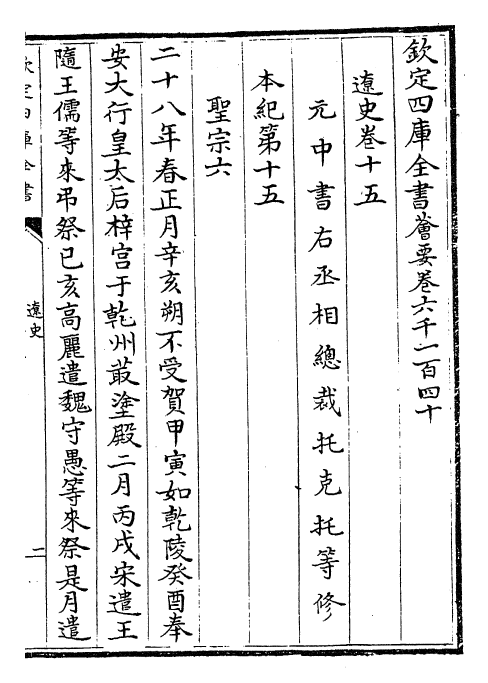 欽定四庫全書薈要卷六千一百四十
遼史卷十五
元中書右丞相總裁托克托等修
本紀第十五
聖宗六
二十八年春正月辛亥朔不受賀甲寅如乾陵癸酉奉
安大行皇太后梓宫于乾州菆塗殿二月丙戌宋遣王
隨王儒等來弔祭己亥高麗遣魏守愚等來祭是月遣
欽定四庫全書
遼史